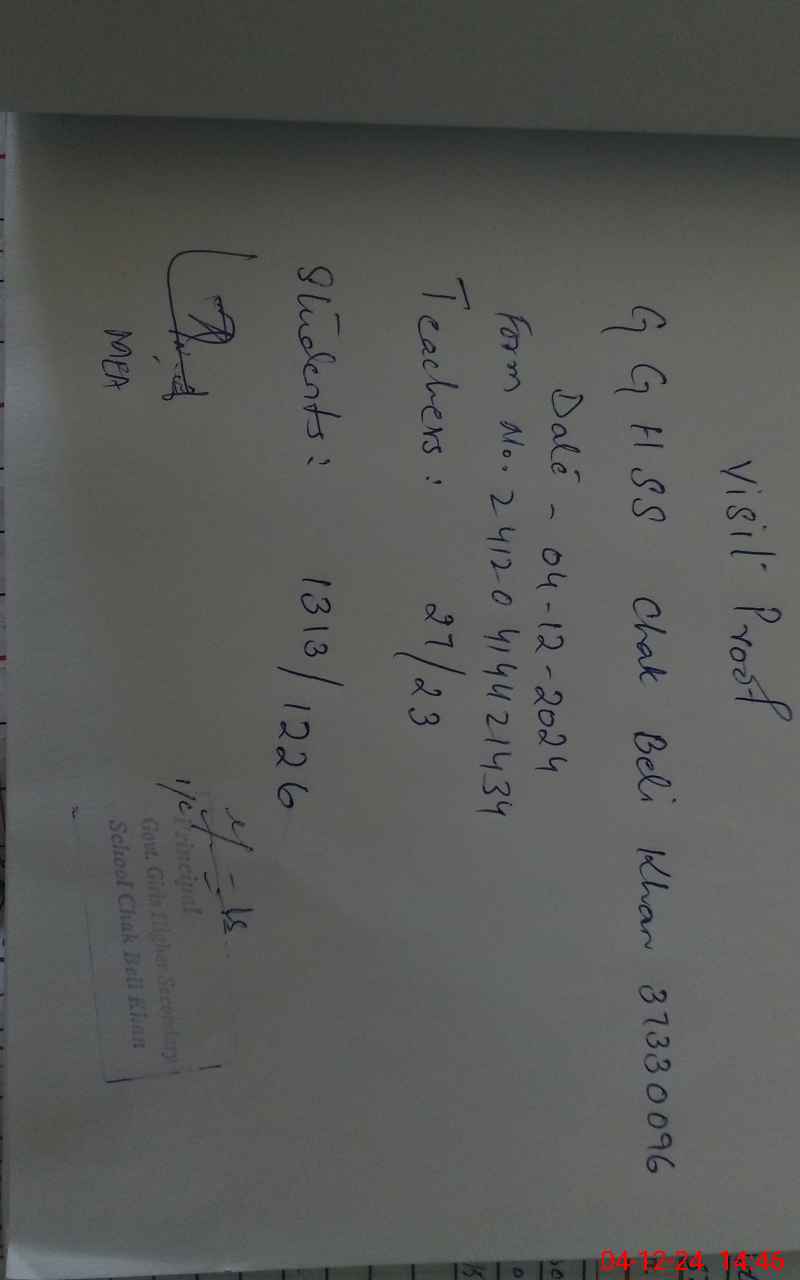 Visit Proof
GGHSS Chak Beli Khan 37330096
Date - 04-12-2024
Form No. 24120414421434
Teachers: 27/23
Students: 1313/1226
MEA
I/C
Principal
Govt. Girls Higher Secondary
School Chak Beli Khan
04-12-24 14:46